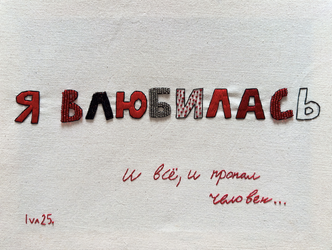 Я ВЛЮБИЛАСЬ
И всё, и пропал
человек...